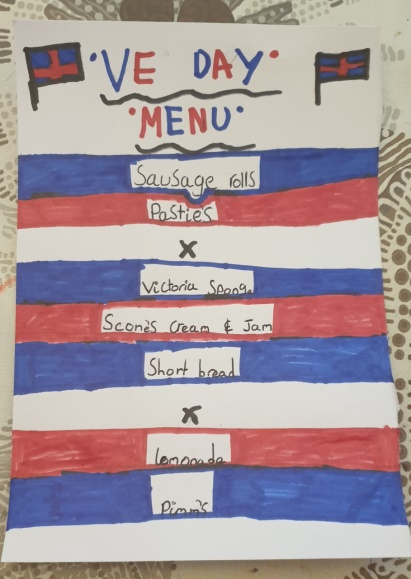 ·VE DAY·
·MENU·
Sausage rolls
Pastie's
x
Victoria Sponge
Scone's Cream & Jam
Short bread
x
lemonade
Pimm's